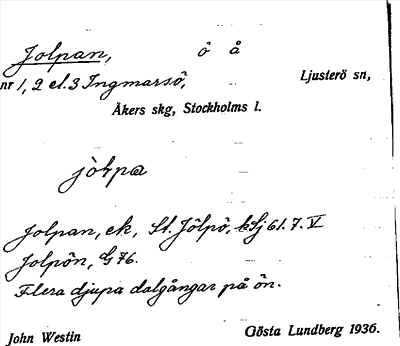 Jolpan, ô å
nr 1, 2 el. 3 Ingmarsö, Ljusterö sn,
Åkers skg, Stockholms l.
Jolpan, ek, St. Jölpö, 61. 7. V
Jolpön, G 76.
Flera djupa dalgångar på ön.
John Westin Gösta Lundberg 1936.